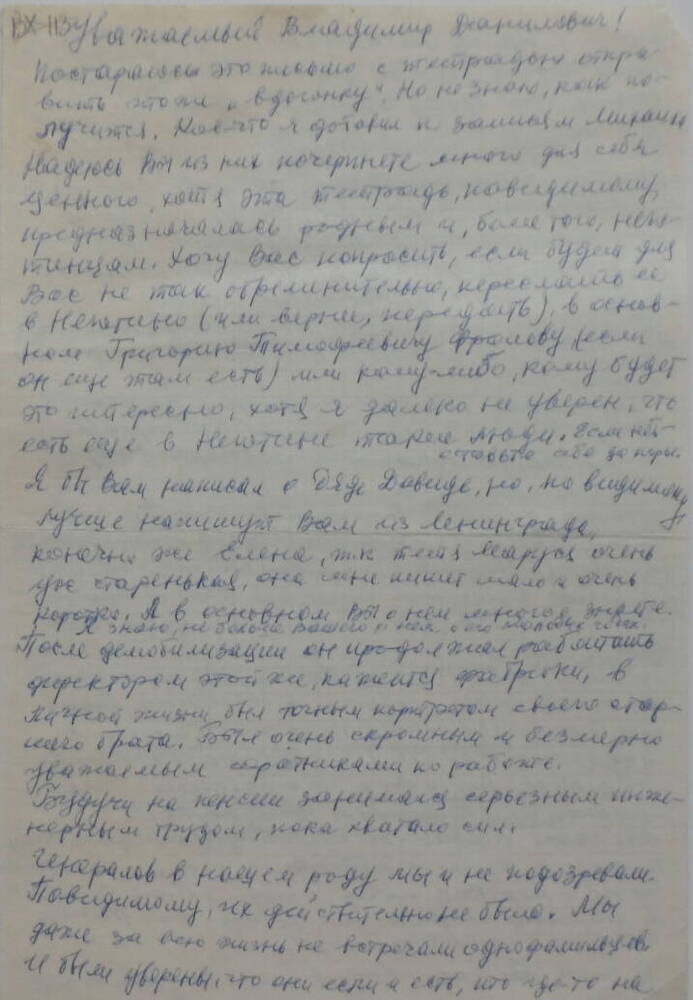 ВХ-113
Уважаемый Владимир Данилович!
Постараюсь это письмо с тетрадью отпра-
вить этой же „вдогонку“. Но не знаю, как по-
лучится. Кое-что я добавил к записям
Надеюсь Вы из них почерпнете много для себя
ценного, хотя эта тетрадь, повидимому,
предназначалась родным и, более того, непя-
тинцам. Хочу Вас попросить, если будет для
Вас не так обременительно, переслать ее
в Непятино (или вернее, передать), в основ-
ном Григорию Тимофеевичу Фролову, (если
он еще там есть) или кому-либо, кому будет
это интересно, хотя я далеко не уверен, что
есть еще в Непятине такие люди. Если нет-
оставьте себе
Я бы Вам написал о дяде Давиде, но, по видимому
лучше напишут Вам из Ленинграда,
конечно же Елена, т.к. тетя Маруся очень
уже старенькая, она мне пишет мало и очень
коротко. А в основном Вы о нем многое знаете.
Я знаю, не больше Вашего о нем, о его
После демобилизации он продолжал работать
директором этой же, кажется фабрики, в
личной жизни был точным портретом своего стар-
шего брата. Был очень скромным и безмерно
уважаемым соратниками по работе.
Будучи на пенсии занимался серьезным инже-
нерным трудом, пока хватало сил.
Генералов в нашем роду мы и не подозревали.
Повидимому, их действительно не было. Мы
даже за всю жизнь не встречали однофамильцев.
И были уверены, что они если и есть, то где-то на